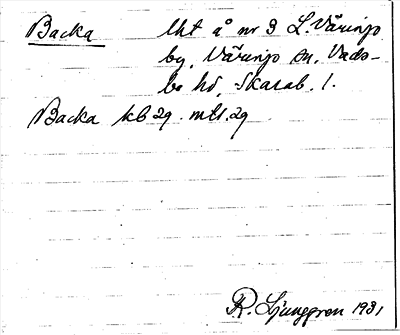 Backa lht å nr 3 L. Våringo
by, Våringo sn, Vads-
bo hd, Skarab. l.
Backa kb 29. mtl. 29
R. Ljunggren 1931